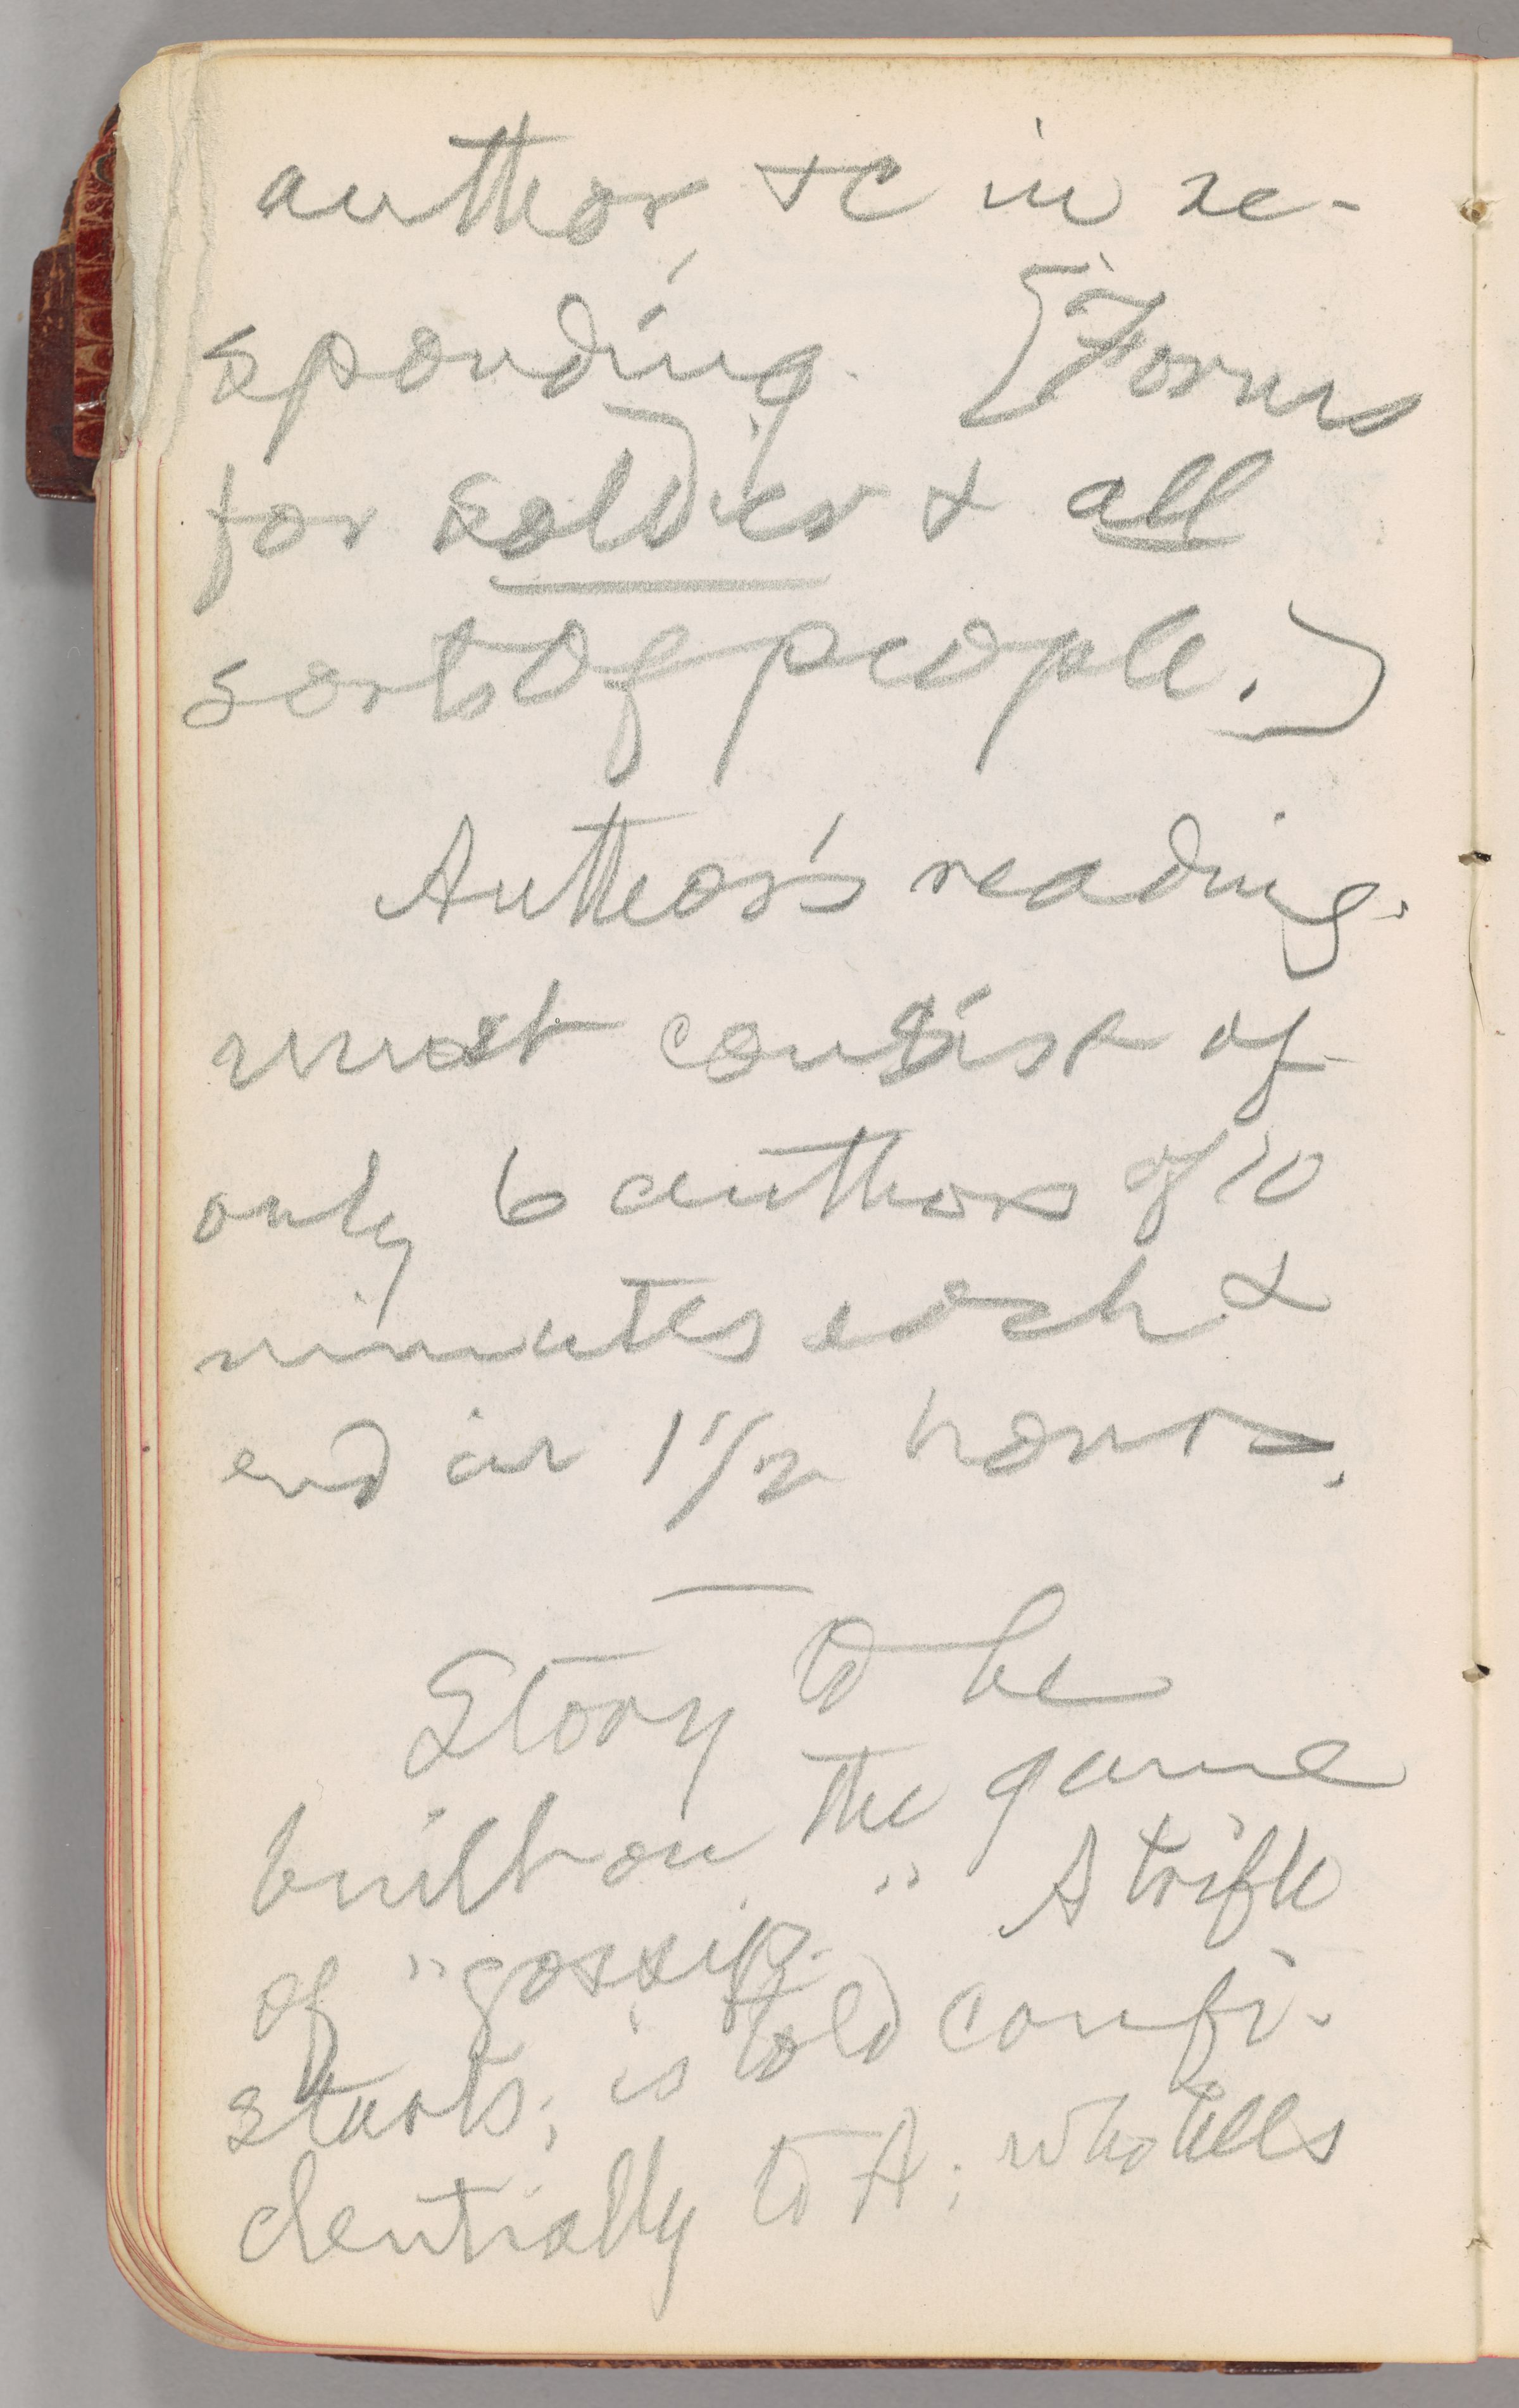 author, &c in re-
sponding. [Forms
for soldier & all
sorts of people.]
Author's reading
must consist of
only 6 authors of 10
minutes each &
end in 1 1/2 hours.
Story to be
built on the game
of "gossip." A trifle
starts; is told confi-
dentially to A; who tells